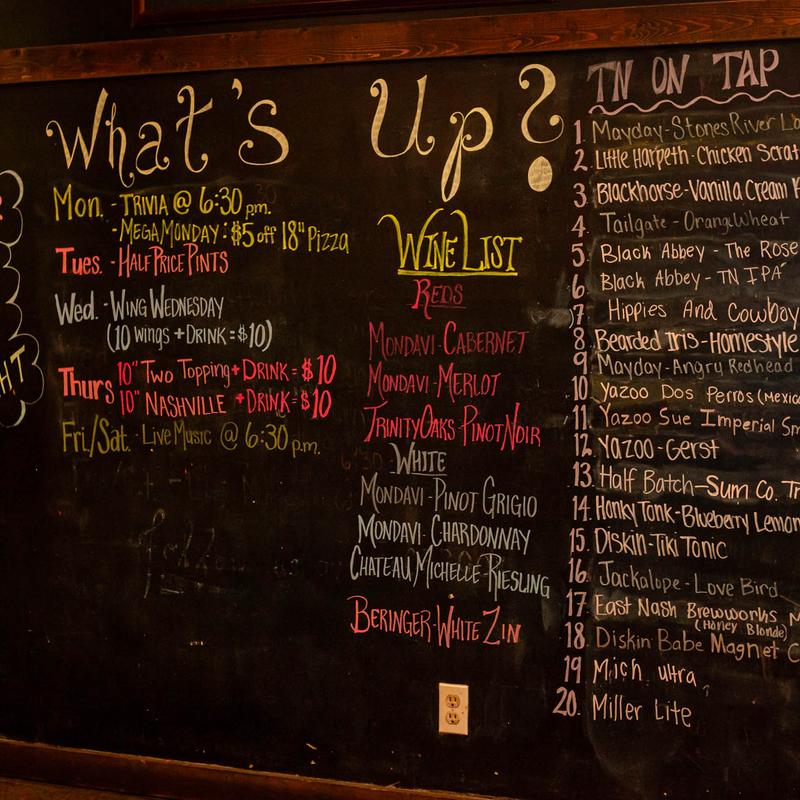 What's Up?
Mon. - TRIVIA @ 6:30 pm.
- MEGAMONDAY: $5 off 18" Pizza
Tues. - HALF PRICE PINTS
Wed. - WING WEDNESDAY
(10 wings + DRINK = $10)
Thurs 10" Two Topping + DRINK = $10
10" NASHVILLE + DRINK = $10
Fri./Sat. - Live Music @ 6:30 p.m.
WINE LIST
REDS
MONDAVI - CABERNET
MONDAVI - MERLOT
TRINITY OAKS - PINOT NOIR
WHITE
MONDAVI - PINOT GRIGIO
MONDAVI - CHARDONNAY
CHATEAU MICHELLE - RIESLING
BERINGER - WHITE ZIN
TN ON TAP
1. Mayday - Stones River
2. Little Harpeth - Chicken Scrat
3. Blackhorse - Vanilla Cream
4. Tailgate - Orange Wheat
5. Black Abbey - The Rose
6. Black Abbey - TN IPA
7. Hippies And Cowboy
8. Bearded Iris - Homestyle
9. Mayday - Angry Redhead
10. Yazoo Dos Perros (Mexic
11. Yazoo Sue Imperial Sm
12. Yazoo - Gerst
13. Half Batch - Sum Co. Tr
14. Honky Tonk - Blueberry Lemon
15. Diskin - Tiki Tonic
16. Jackalope - Love Bird
17. East Nash Brewworks
(Honey Blonde)
18. Diskin Babe Magnet C
19. Mich ultra
20. Miller Lite
HT